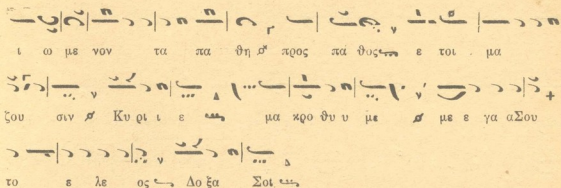 ι ω με νον τα πα θη προς πά θος ε τοι μα
ζου σιν Κυ ρι ι ε μα κρο θυ υ με με ε γα α Σου
το ε λε ος Δο ξα Σοι